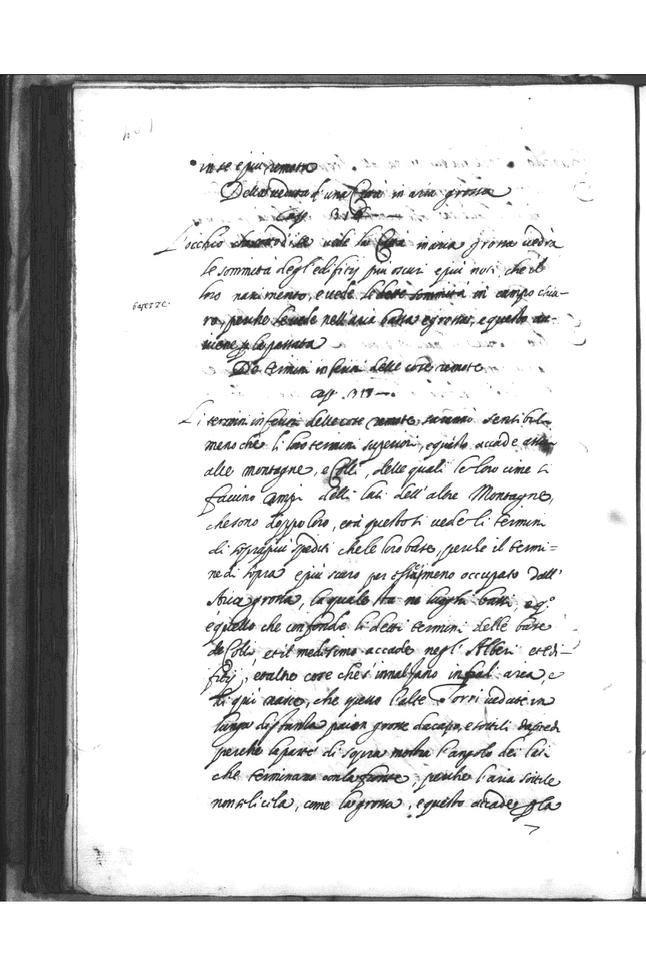 in se e piu remota
Della veduta d'una Città in aria grossa
Cap. 314
L'occhio che sotto di se vede la Città in aria grossa vedrà
le sommità degl'edifitij piu oscuri e piu noti, che il
loro nascimento, e vede le dette sommità in campo chia-
ro, perche le vede nell'aria bassa e grossa, e questo av-
viene p la passata
De termini inferiori delle cose remote
Cap. 315
Li termini inferiori delle cose remote saranno sensibili
meno che li loro termini superiori, e questo accade assai
alle montagne, e Colli, delle quali le loro cime si
faccino Campi delli lati dell'altre Montagne,
che sono doppo loro, et a questo si vede li termini
di sopra più spediti che le loro base, perche il termi-
ne di sopra e più scuro per esser meno occupato dall'
Aria grossa, la quale sta ne luoghi bassi, e q.o
è quello che confonde li detti termini delle base
de Colli et il medesimo accade negl'Alberi et edi-
fitij, et altre cose che s'innalzano infrà l'aria, e
di quì nasce, che spesso l'alte Torri vedute in
lunga distanza paion grosse da capo, e sottili da piedi
perche la parte di sopra mostra l'angolo dei lati
che terminano con la fronte, perche l'aria sottile
non ti li cela, come la grossa, e questo accade p la